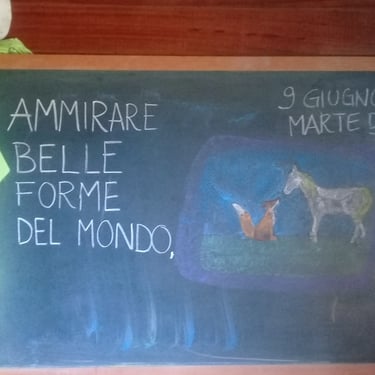 AMMIRARE
BELLE
FORME
DEL MONDO,
9 GIUGNO
MARTEDÌ